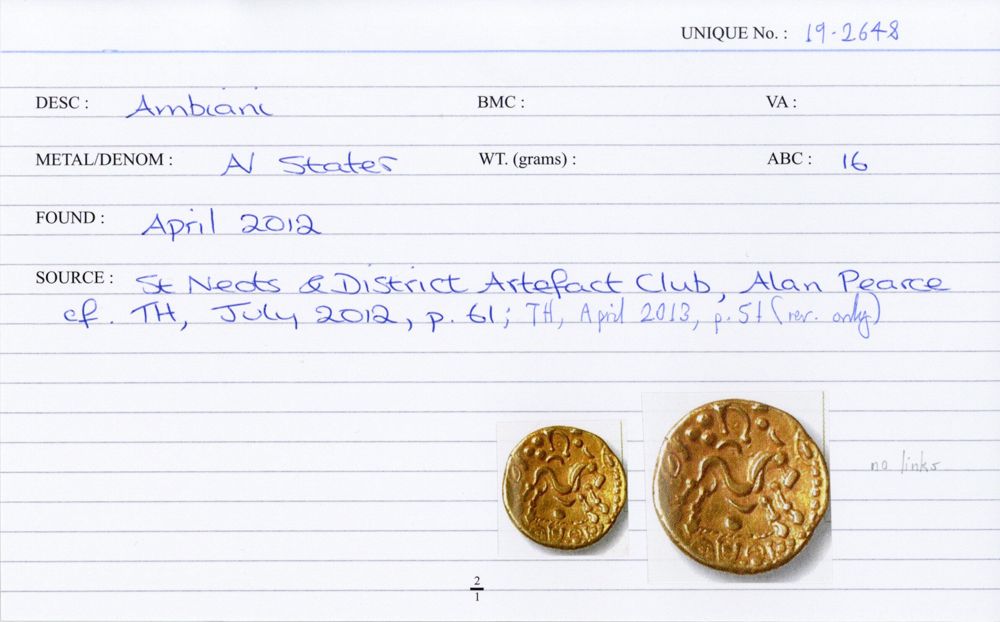 UNIQUE No. : 19-2648
DESC : Ambiani BMC : VA :
METAL/DENOM : AV Stater WT. (grams) : ABC : 16
FOUND : April 2012
SOURCE : St Neots & District Artefact Club, Alan Pearce
cf. TH, July 2012, p. 61; TH, April 2013, p. 51 (rev. only)
no links
2
1